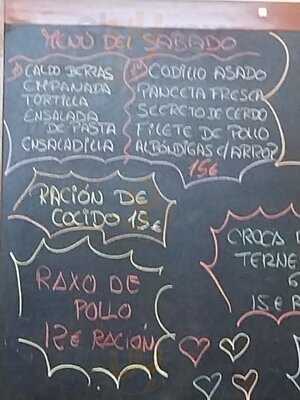 MENÚ DEL SABADO
1º) CALDO BERZAS
EMPANADA
TORTILLA
ENSALADA
DE PASTA
ENSALADILLA
CODILLO ASADO
PANCETA FRESCA
SECRETO DE CERDO
FILETE DE POLLO
ALBÓNDIGAS C/ARROZ
15€
RACIÓN DE
COCIDO 15€
RAXO DE
POLLO
12€ RACIÓN
CROCA
TERNE
6
15€ R